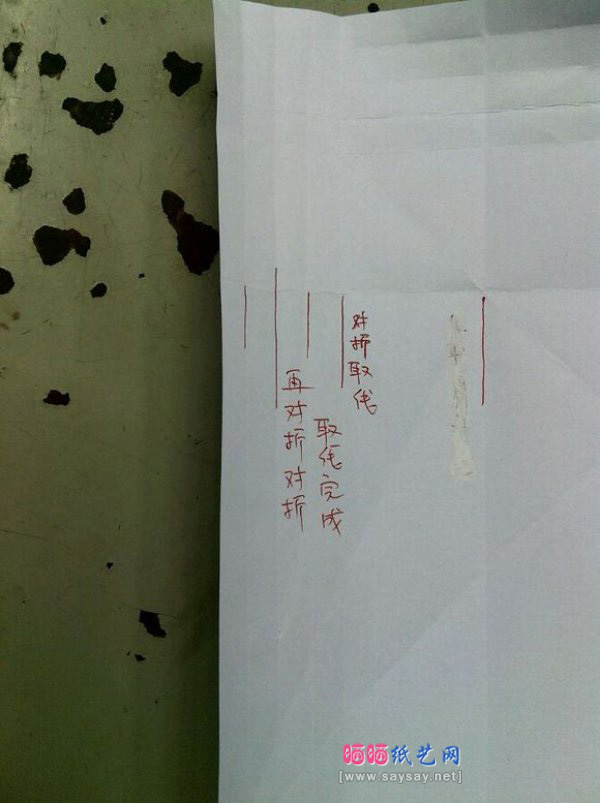 对折取线
再对折对折
取线完成
晒晒纸艺网
[www.saysay.net]